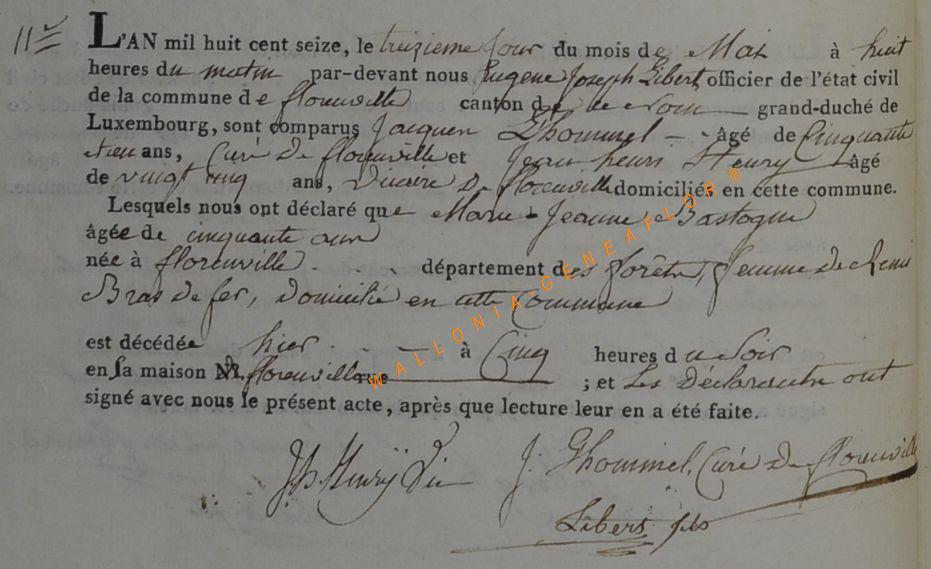 11e
L'AN mil huit cent seize, le treizieme Jour du mois de Mai à huit
heures du matin par-devant nous Eugene Joseph Libert, officier de l'état civil
de la commune de florenville canton de grand-duché de
Luxembourg, sont comparus Jacques Lhommel âgé de Cinquante
ans, Curé De florenville et henry âgé
de vingt cinq ans, Vicaire De florenville domiciliés en cette commune.
Lesquels nous ont déclaré que Marie-Jeanne Bastogne
âgée de cinquante ans
née à florenville département des forêts, femme de Remi
Bras de fer, Domicilié en cette Commune
est décédée hier à Cinq heures du Soir
en sa maison florenville rue ; et Les Déclarants ont
signé avec nous le présent acte, après que lecture leur en a été faite.
Jh henrÿ J. Lhommel, Curé De florenville
Libert fils
WALLONIA-GENEAFLOR®